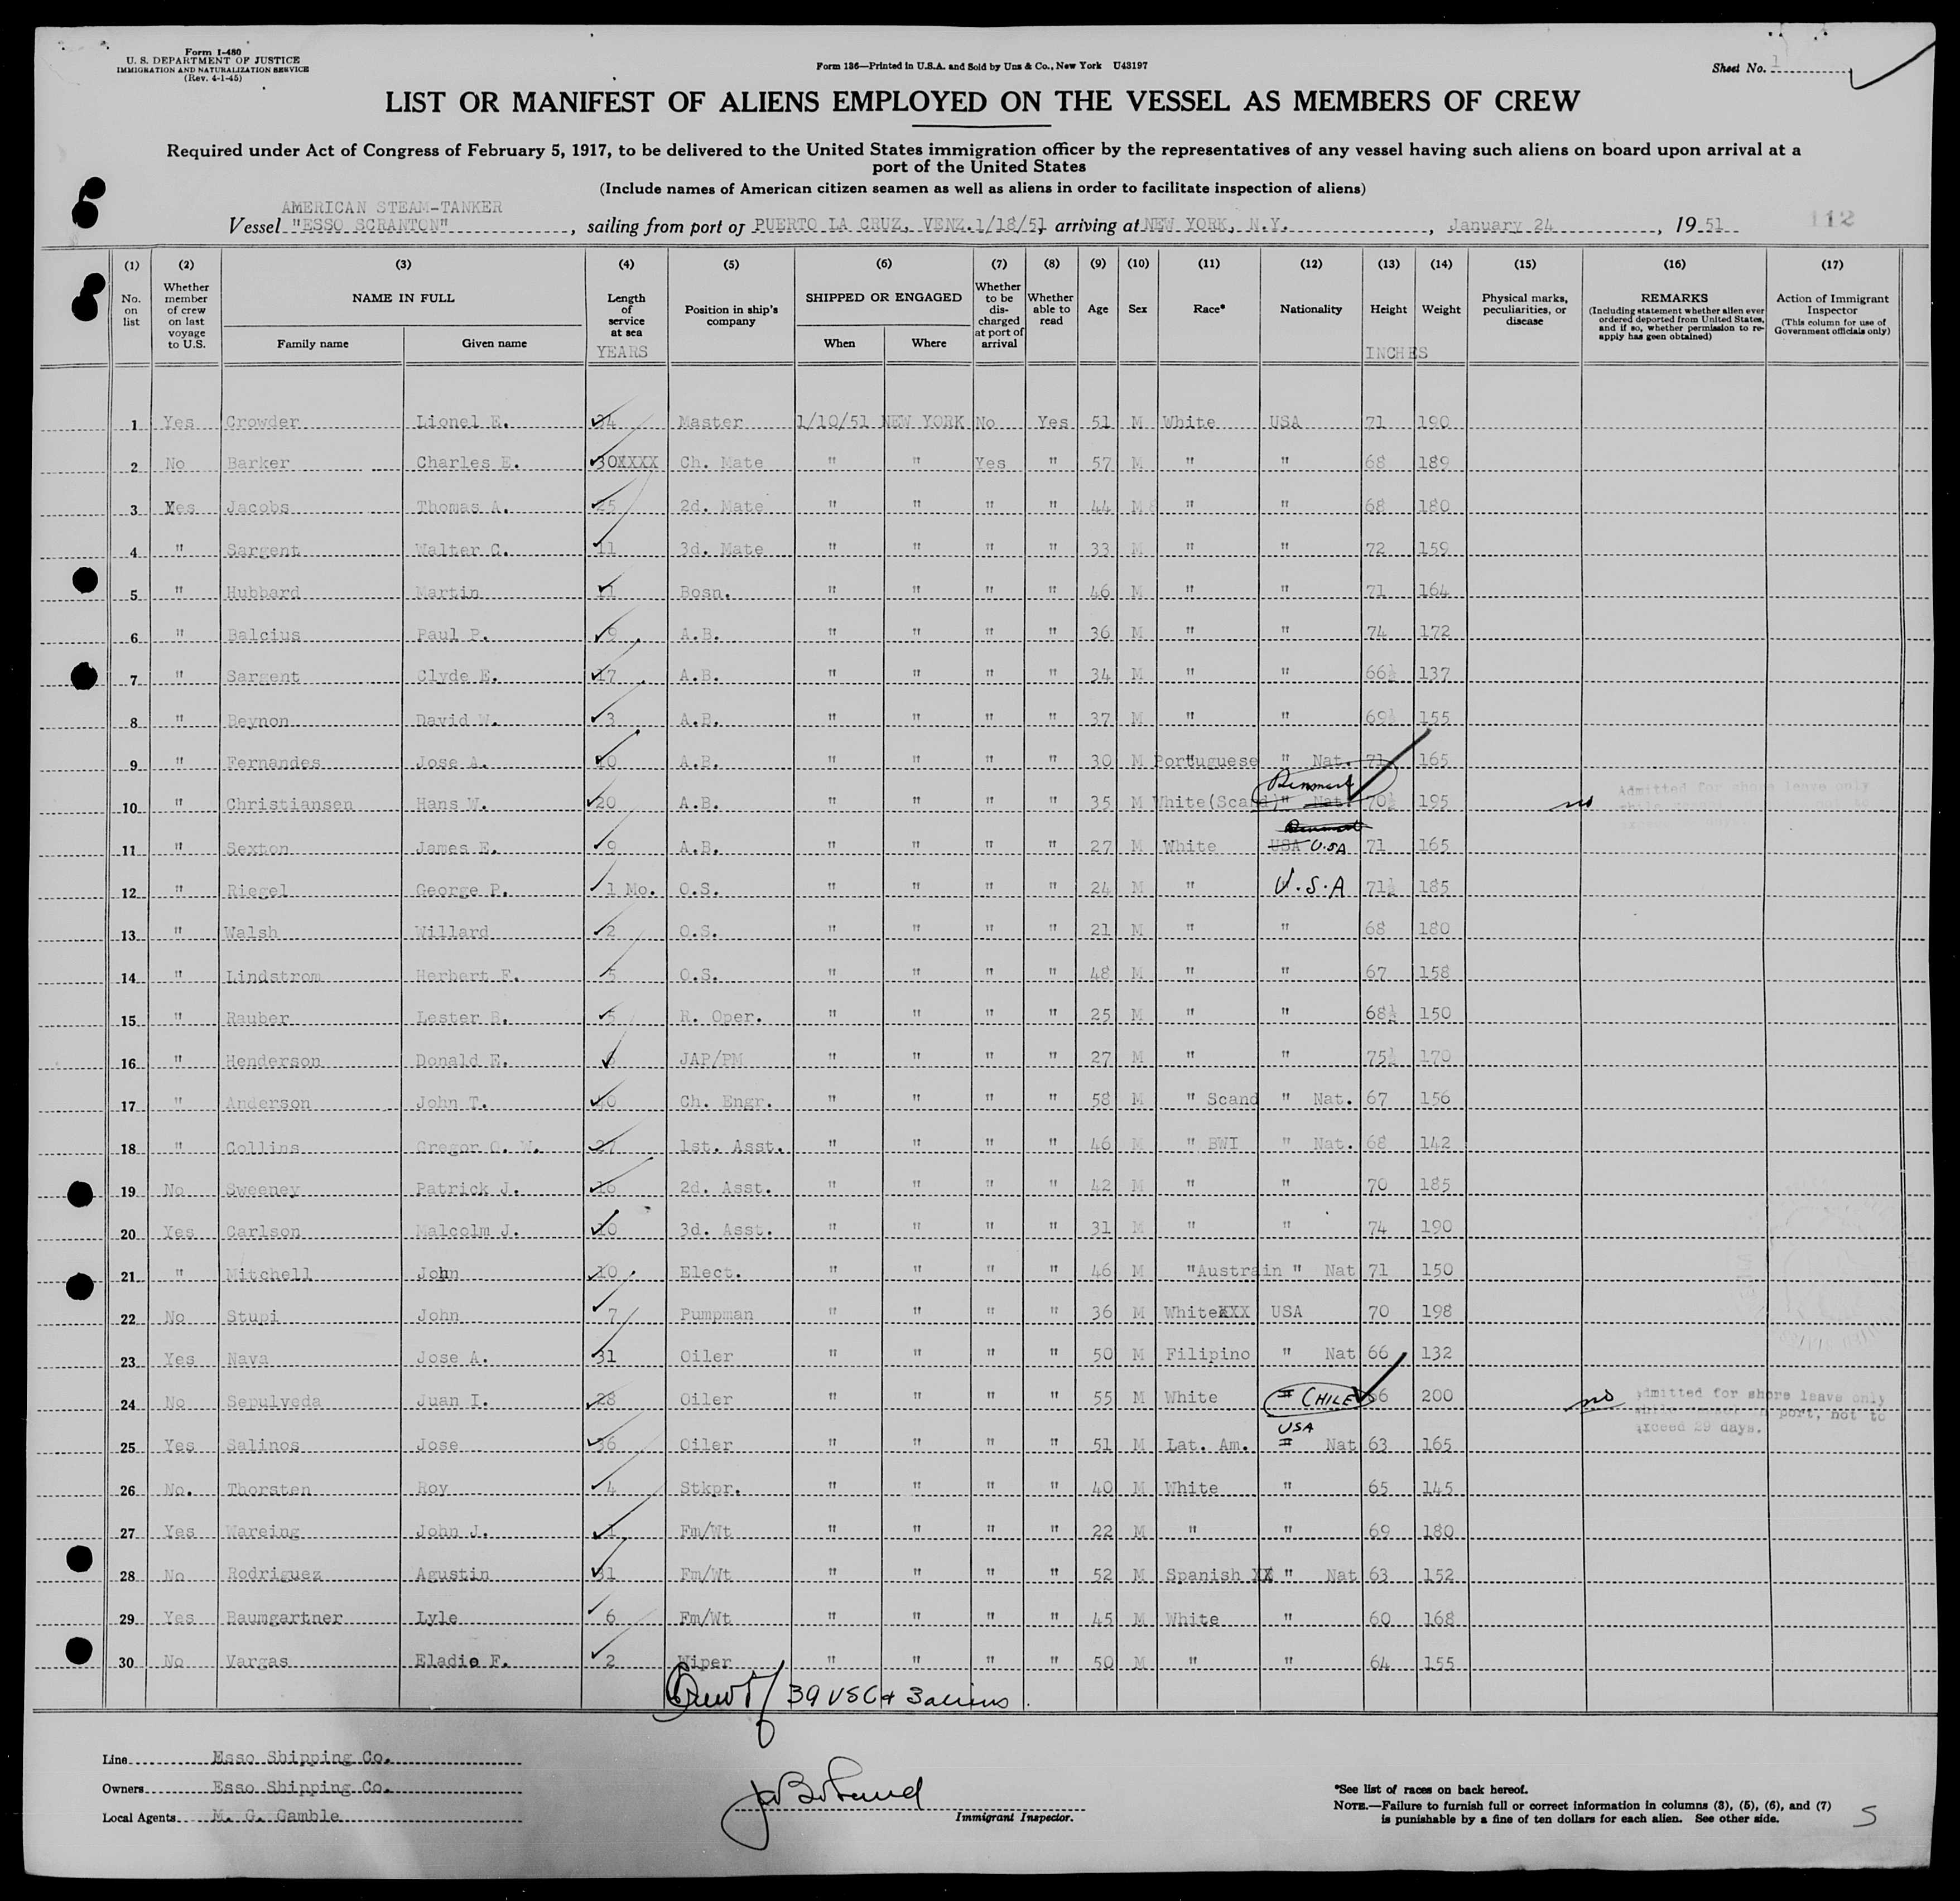 Form I-480
U. S. DEPARTMENT OF JUSTICE
IMMIGRATION AND NATURALIZATION SERVICE
(Rev. 4-1-45)
Form 136—Printed in U.S.A. and Sold by Unz & Co., New York U43197
Sheet No. 1
LIST OR MANIFEST OF ALIENS EMPLOYED ON THE VESSEL AS MEMBERS OF CREW
Required under Act of Congress of February 5, 1917, to be delivered to the United States immigration officer by the representatives of any vessel having such aliens on board upon arrival at a
port of the United States
(Include names of American citizen seamen as well as aliens in order to facilitate inspection of aliens)
AMERICAN STEAM-TANKER
Vessel "ESSO SCRANTON", sailing from port of PUERTO LA CRUZ, VENZ. 1/18/51, arriving at NEW YORK, N.Y., January 24, 1951
112
(1) (2) (3) (4) (5) (6) (7) (8) (9) (10) (11) (12) (13) (14) (15) (16) (17)
No. on list
Whether member of crew on last voyage to U.S.
NAME IN FULL
Family name Given name
Length of service at sea
YEARS
Position in ship's company
SHIPPED OR ENGAGED
When Where
Whether to be discharged at port of arrival
Whether able to read
Age
Sex
Race*
Nationality
Height
Weight
INCHES
Physical marks, peculiarities, or disease
REMARKS
(Including statement whether alien ever ordered deported from United States, and if so, whether permission to re-apply has geen obtained)
Action of Immigrant Inspector
(This column for use of Government officials only)
1 Yes Crowder Lionel E. 34 Master 1/10/51 NEW YORK No Yes 51 M White USA 71 190
2 No Barker Charles E. 30XXXX Ch. Mate " " Yes " 57 M " " 68 189
3 Yes Jacobs Thomas A. 25 2d. Mate " " " " 44 M " " 68 180
4 " Sargent Walter C. 11 3d. Mate " " " " 33 M " " 72 159
5 " Hubbard Martin 11 Bosn. " " " " 46 M " " 71 164
6 " Balcius Paul P. 9 A.B. " " " " 36 M " " 74 172
7 " Sargent Clyde E. 17 A.B. " " " " 34 M " " 66½ 137
8 " Beynon David W. 3 A.B. " " " " 37 M " " 69½ 155
9 " Fernandes Jose A. 10 A.B. " " " " 30 M Portuguese " Nat. 71 165
10 " Christiansen Hans W. 20 A.B. " " " " 35 M White(Scand) " Nat. Denmark 70½ 195 no Admitted for shore leave only
11 " Sexton James E. 9 A.B. " " " " 27 M White Denmark USA U.SA 71 165
12 " Riegel George P. 1 Mo. O.S. " " " " 24 M " U.S.A 71½ 185
13 " Walsh Willard 2 O.S. " " " " 21 M " " 68 180
14 " Lindstrom Herbert F. 5 O.S. " " " " 48 M " " 67 158
15 " Rauber Lester B. 5 R. Oper. " " " " 25 M " " 68½ 150
16 " Henderson Donald E. JAP/PM " " " " 27 M " " 75½ 170
17 " Anderson John T. 40 Ch. Engr. " " " " 58 M " Scand " Nat. 67 156
18 " Collins Gregor G. W. 27 1st. Asst. " " " " 46 M " BWI " Nat. 68 142
19 No Sweeney Patrick J. 16 2d. Asst. " " " " 42 M " " 70 185
20 Yes Carlson Malcolm J. 10 3d. Asst. " " " " 31 M " " 74 190
21 " Mitchell John 10 Elect. " " " " 46 M "Austrain " Nat 71 150
22 No Stupi John 7 Pumpman " " " " 36 M WhiteXXX USA 70 198
23 Yes Nava Jose A. 31 Oiler " " " " 50 M Filipino " Nat 66 132
24 No Sepulveda Juan I. 28 Oiler " " " " 55 M White " CHILE 66 200 no Admitted for shore leave only
port, not to
exceed 29 days.
25 Yes Salinos Jose 36 Oiler " " " " 51 M Lat. Am. USA " Nat 63 165
26 No. Thorsten Roy 4 Stkpr. " " " " 40 M White " 65 145
27 Yes Wareing John J. 1 Fm/Wt " " " " 22 M " " 69 180
28 No Rodriguez Agustin 31 Fm/Wt " " " " 52 M Spanish XX " Nat 63 152
29 Yes Baumgartner Lyle 6 Fm/Wt " " " " 45 M White " 60 168
30 No Vargas Eladio F. 2 Wiper " " " " 50 M " " 64 155
Crew of 39 USC + 3 aliens.
Line Esso Shipping Co.
Owners Esso Shipping Co.
Local Agents M. G. Gamble
Immigrant Inspector.
*See list of races on back hereof.
NOTE.—Failure to furnish full or correct information in columns (3), (5), (6), and (7)
is punishable by a fine of ten dollars for each alien. See other side.
S